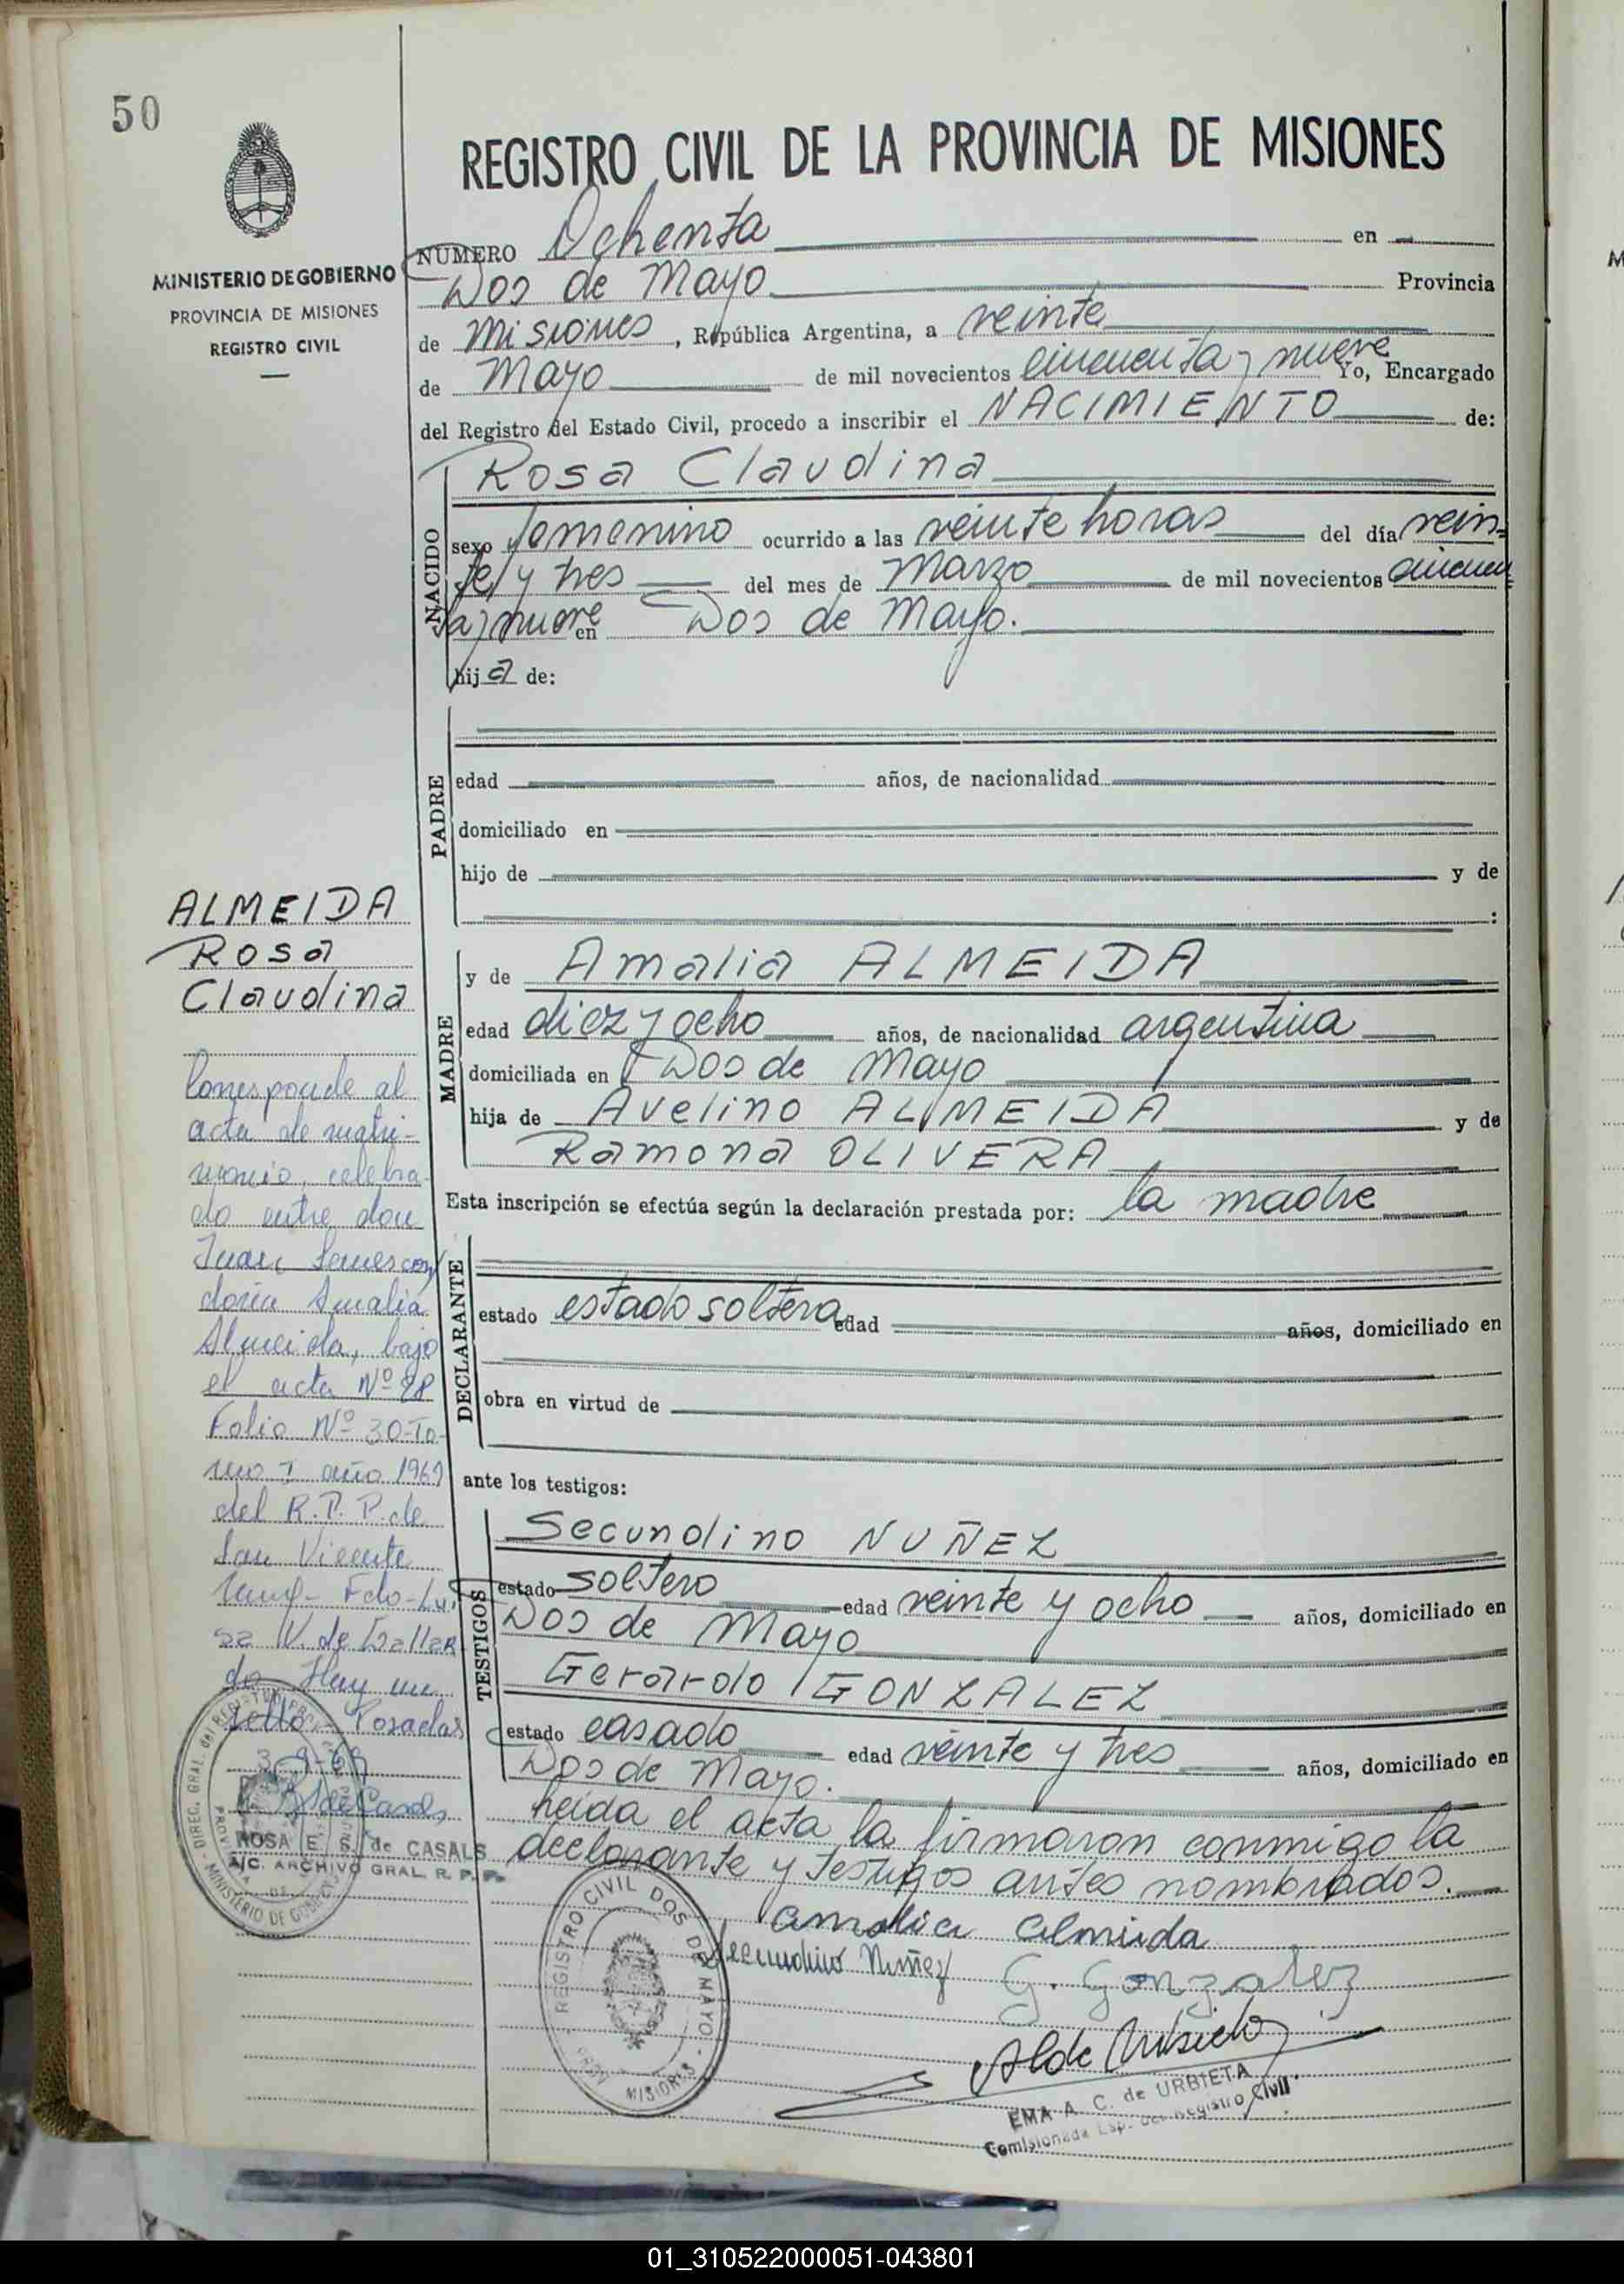 50
MINISTERIO DE GOBIERNO
PROVINCIA DE MISIONES
REGISTRO CIVIL
REGISTRO CIVIL DE LA PROVINCIA DE MISIONES
NÚMERO Ochenta en
Dos de Mayo Provincia
de Misiones, República Argentina, a veinte
de Mayo de mil novecientos cincuenta y nueve Yo, Encargado
del Registro del Estado Civil, procedo a inscribir el NACIMIENTO de:
Rosa Claudina
NACIDO
sexo femenino ocurrido a las veinte horas del día vein-
te y tres del mes de Marzo de mil novecientos cincuen
ta y nueve en Dos de Mayo.
hija de:
PADRE
edad años, de nacionalidad
domiciliado en
hijo de y de
:
MADRE
y de Amalia ALMEIDA
edad diez y ocho años, de nacionalidad argentina
domiciliada en Dos de Mayo
hija de Avelino ALMEIDA y de
Ramona OLIVERA
Esta inscripción se efectúa según la declaración prestada por: la madre
DECLARANTE
estado estado soltera edad años, domiciliado en
obra en virtud de
ante los testigos:
TESTIGOS
Secundino NUÑEZ
estado soltero edad veinte y ocho años, domiciliado en
Dos de Mayo
Gerardo GONZALEZ
estado casado edad veinte y tres años, domiciliado en
Dos de Mayo.
Leida el acta la firmaron conmigo la
declarante y testigos antes nombrados.
Amalia Almida
Secundino Nuñez G. Gonzalez
EMA A. C. de URBIETA
Comisionada Esp. del Registro Civil
REGISTRO CIVIL DOS DE MAYO
MISIONES
ALMEIDA
Rosa
Claudina
Corresponde al
acta de matri-
monio, celebra-
do entre don
Juan con
doña Amalia
Almeida, bajo
el acta Nº 28
Folio Nº 30-To-
mo I año 1969
del R.P.P. de
San Vicente
Fdo-Lui
sa V. de
do Hay un
sello - Posadas
3-9-69
ROSA E. S. de CASALS
A/C. ARCHIVO GRAL. R. P. P.
DIREC. GRAL. del
MINISTERIO DE GOBIERNO
01_310522000051-043801